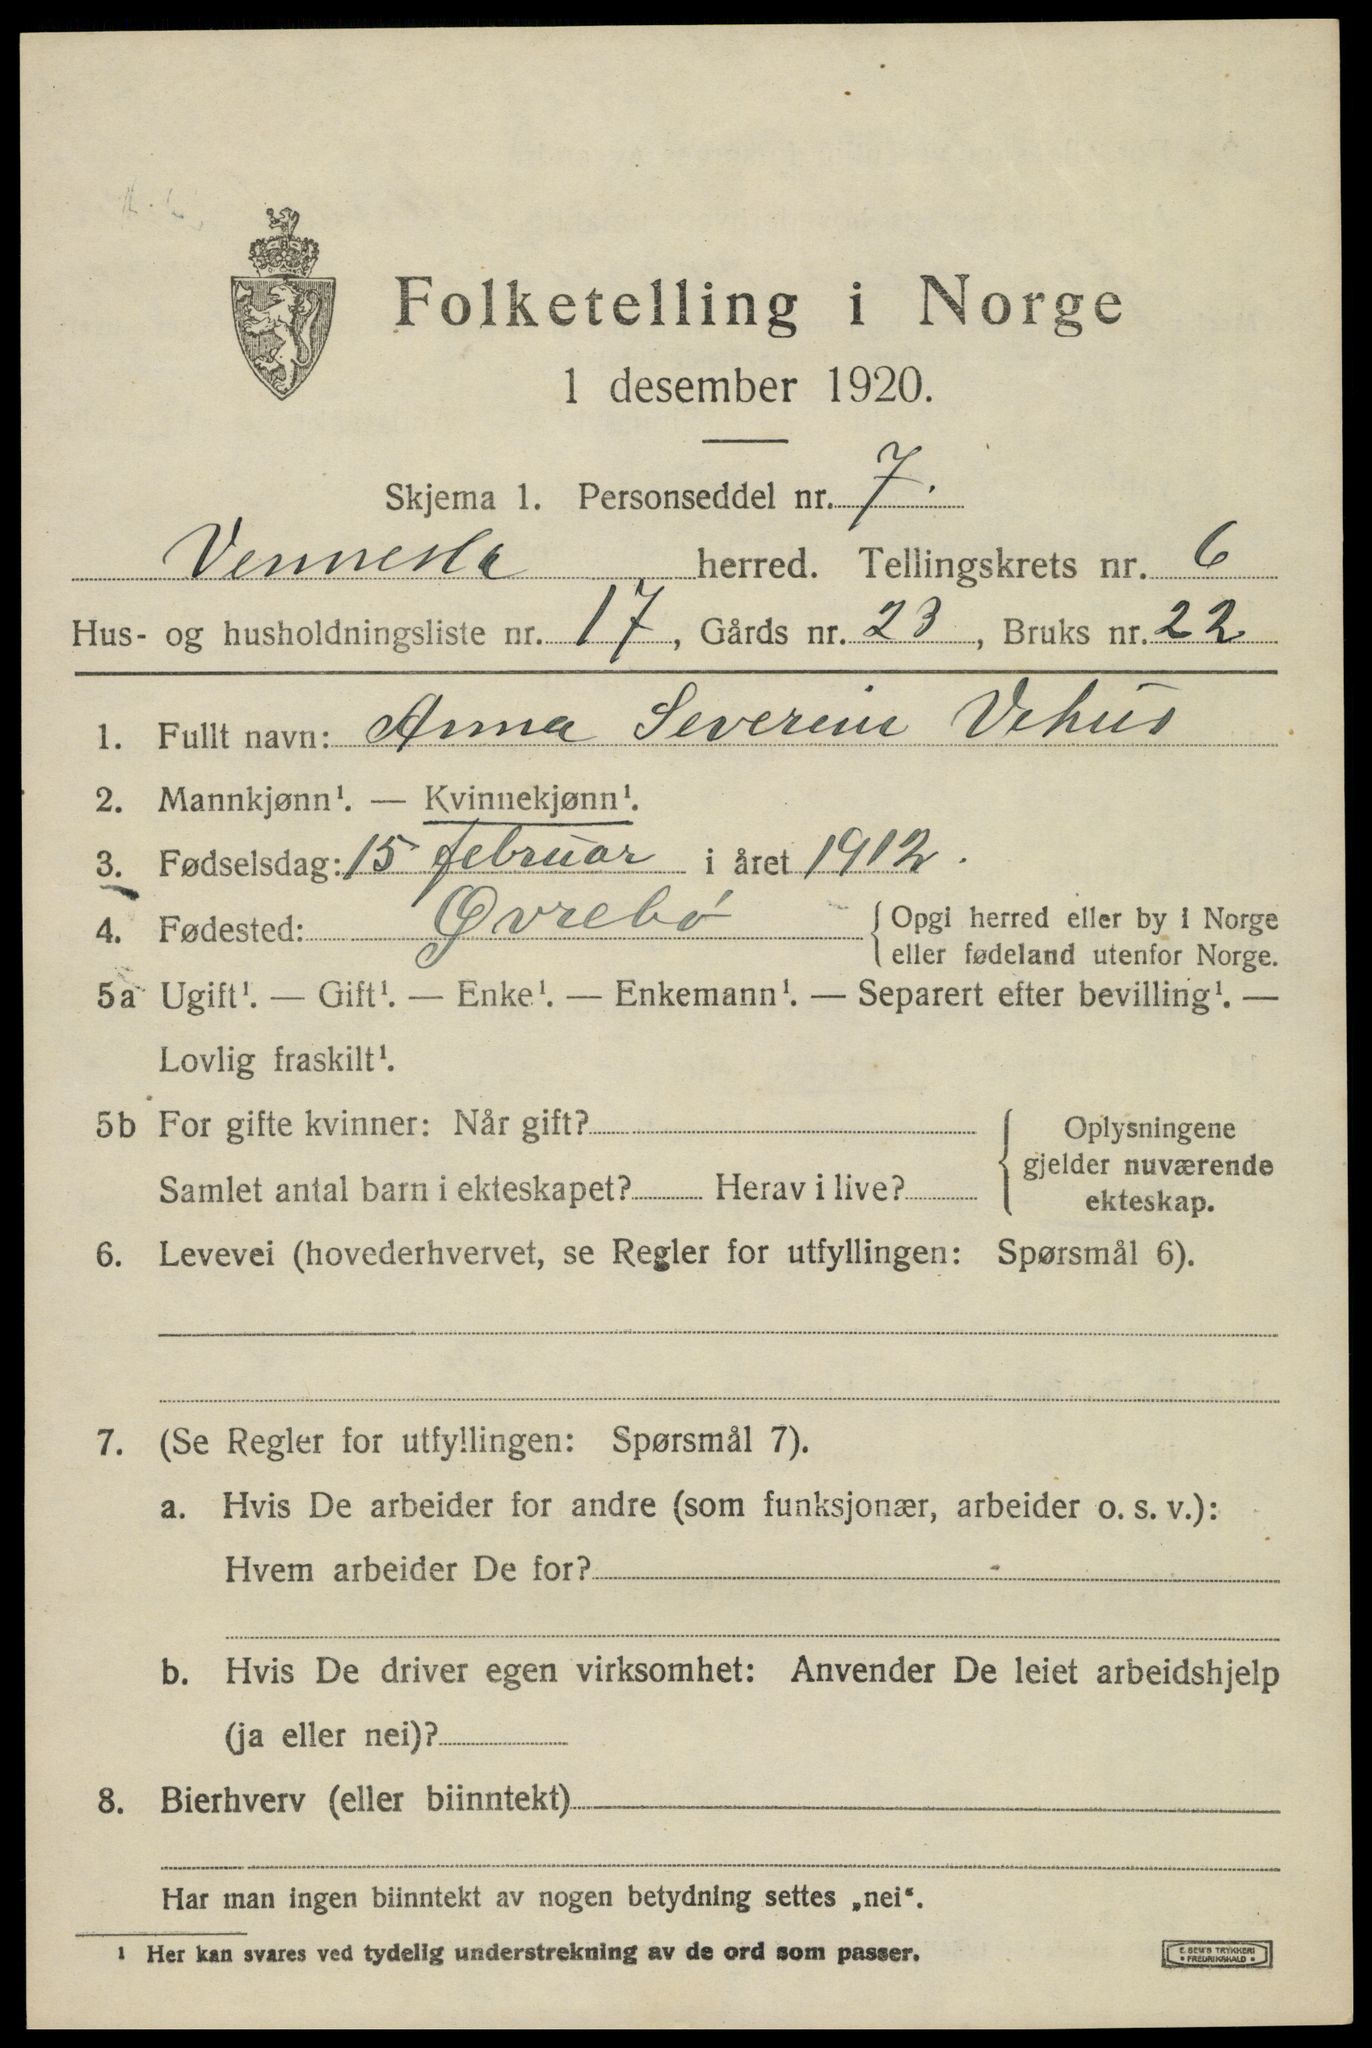 Folketelling i Norge
1 desember 1920.
Skjema 1. Personseddel nr. 7.
Vennesla herred. Tellingskrets nr. 6
Hus- og husholdningsliste nr. 17, Gårds nr. 23, Bruks nr. 22
1. Fullt navn: Anna Severine Vehus
2. Mannkjønn¹. — Kvinnekjønn¹.
3. Fødselsdag: 15 februar i året 1912.
4. Fødested: Øvrebó {Opgi herred eller by i Norge
eller fødeland utenfor Norge.
5a Ugift¹. — Gift¹. — Enke¹. — Enkemann¹. — Separert efter bevilling¹. —
Lovlig fraskilt¹.
5b For gifte kvinner: Når gift?
Samlet antal barn i ekteskapet? Herav i live?
Oplysningene
gjelder nuværende
ekteskap.
6. Levevei (hovederhvervet, se Regler for utfyllingen: Spørsmål 6).
7. (Se Regler for utfyllingen: Spørsmål 7).
a. Hvis De arbeider for andre (som funksjonær, arbeider o. s. v.):
Hvem arbeider De for?
b. Hvis De driver egen virksomhet: Anvender De leiet arbeidshjelp
(ja eller nei)?
8. Bierhverv (eller biinntekt)
Har man ingen biinntekt av nogen betydning settes „nei“.
1 Her kan svares ved tydelig understrekning av de ord som passer.
E. SEM'S TRYKKERI
• FREDRIKSHALD •